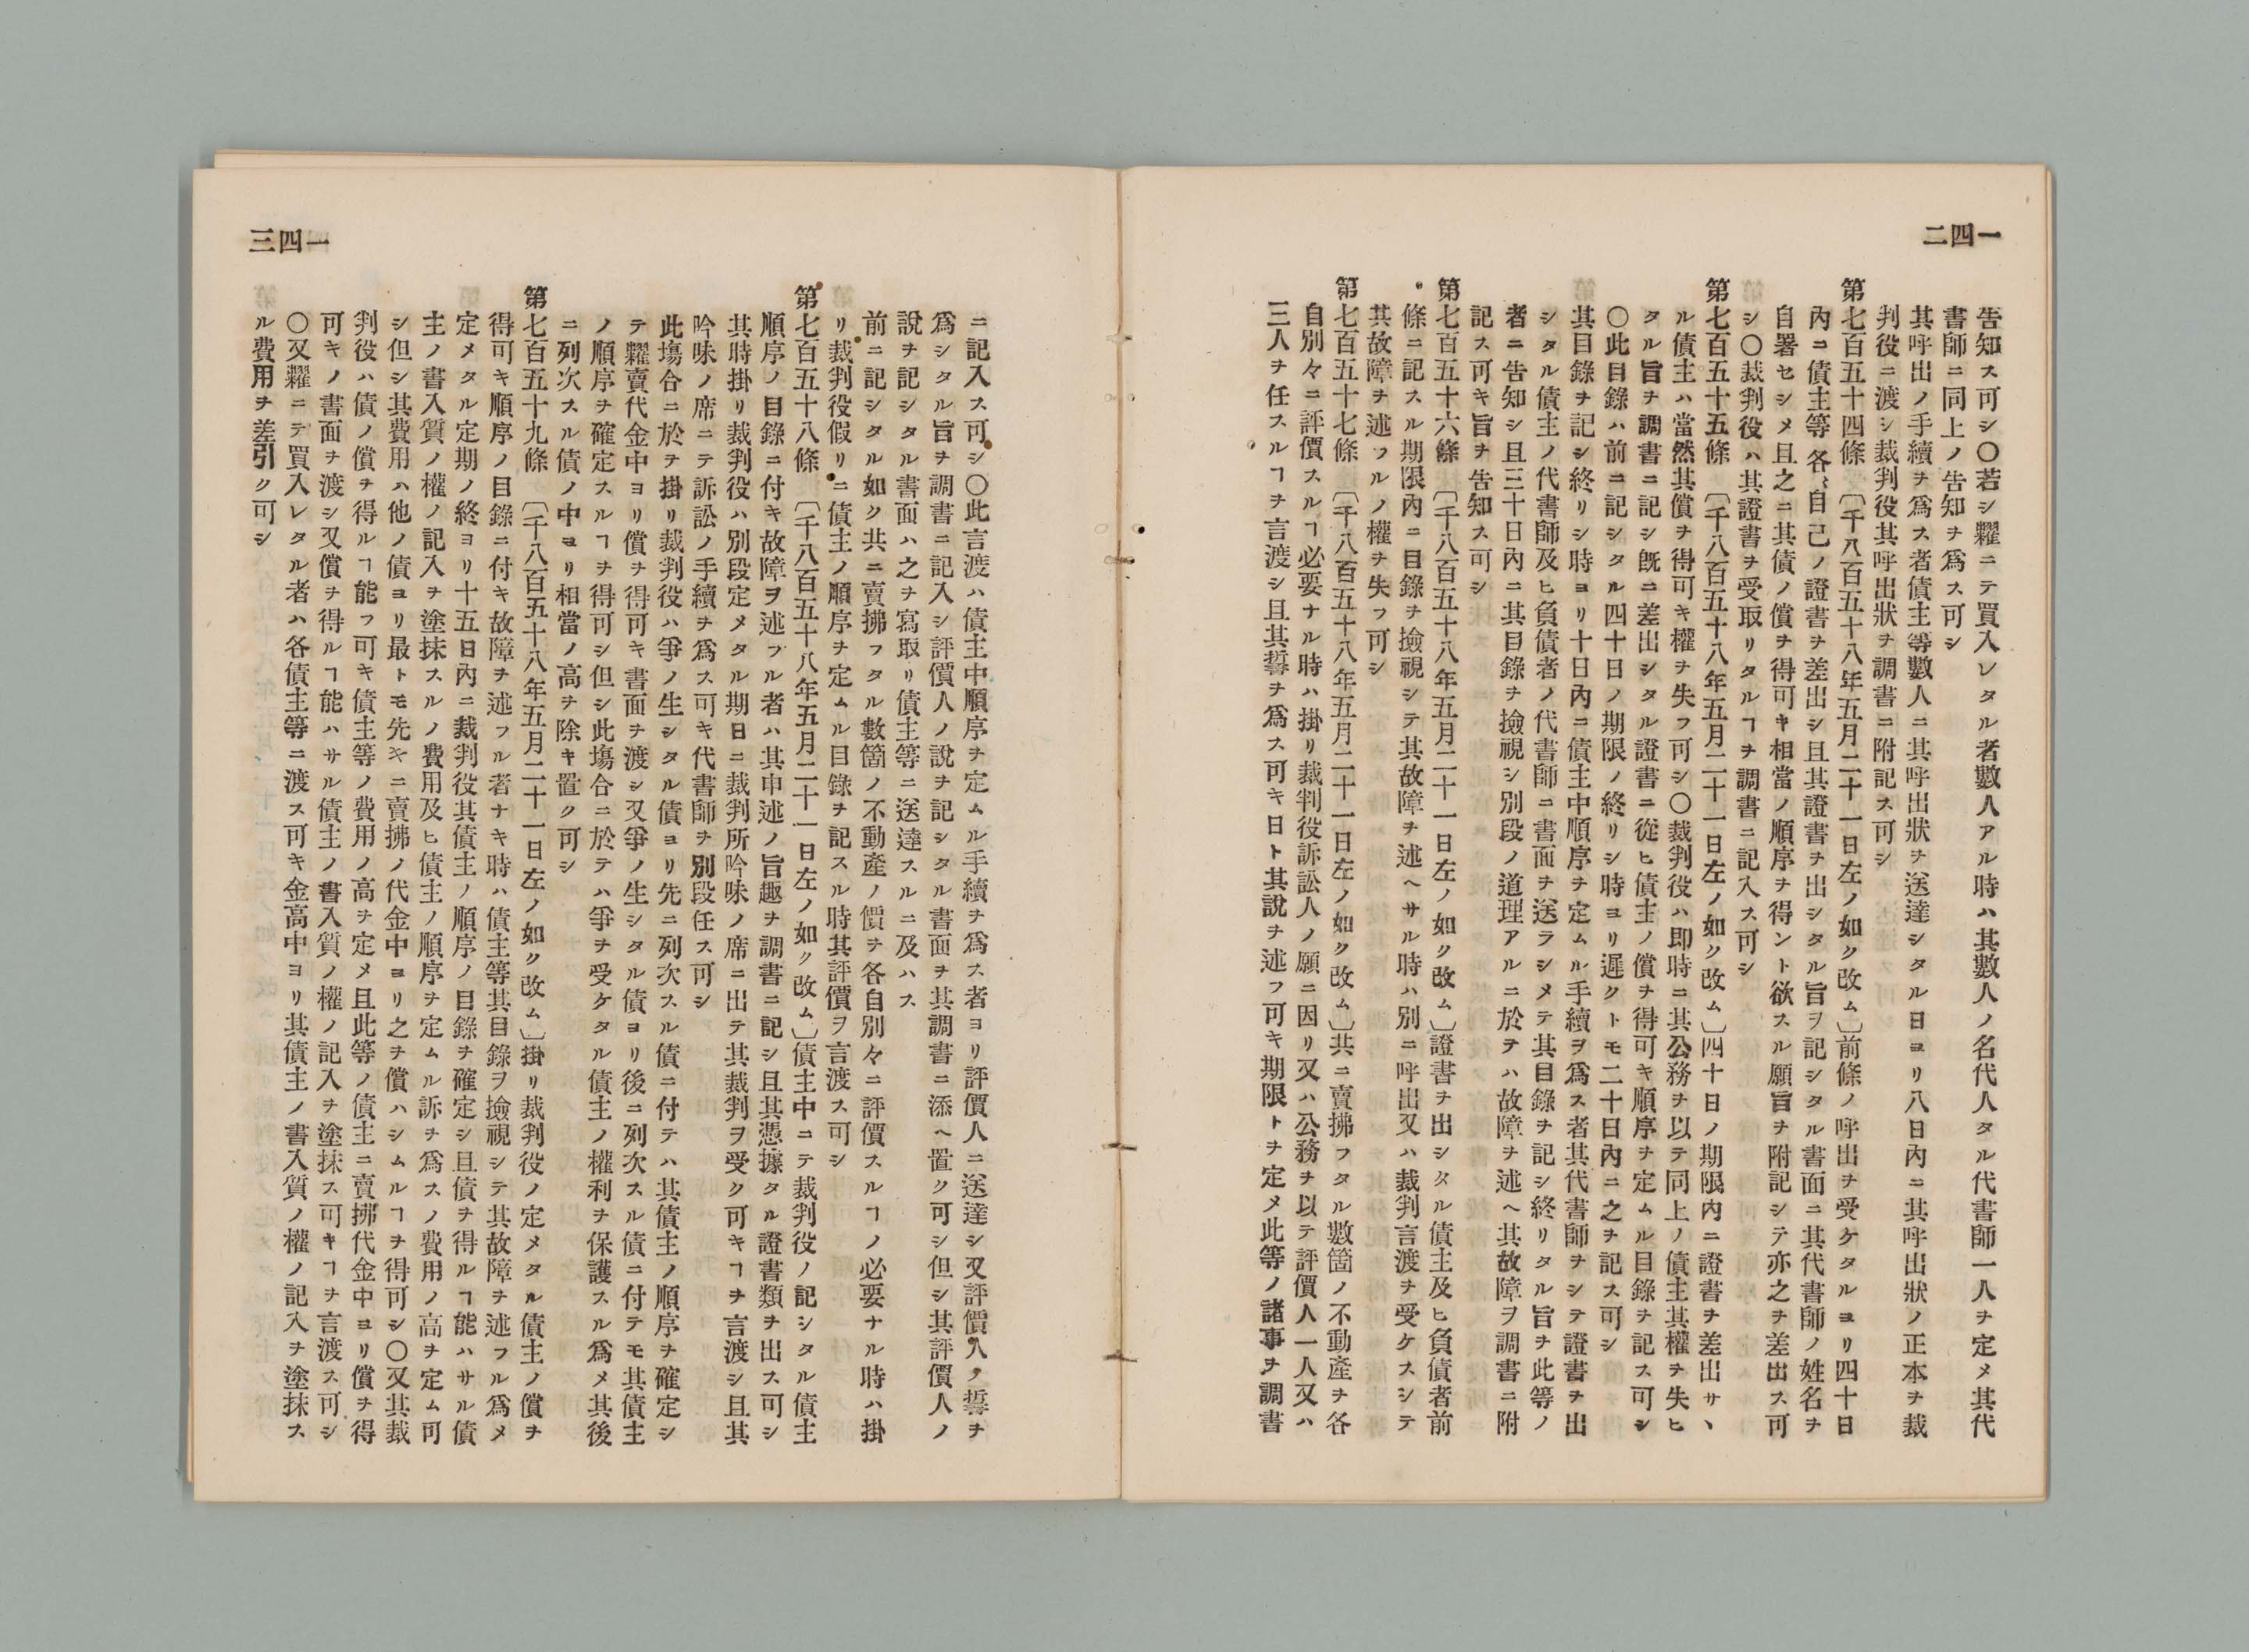 一四二
告知ス可シ〇若シ糶ニテ買入レタル者數人アル時ハ其數人ノ名代人タル代書師一人ヲ定メ其代
書師ニ同上ノ告知ヲ爲ス可シ
其呼出ノ手續ヲ爲ス者債主等數人ニ其呼出狀ヲ送達シタル日ヨリ八日內ニ其呼出狀ノ正本ヲ裁
判役ニ渡シ裁判役其呼出狀ヲ調書ニ附記ス可シ
第七百五十四條 〔千八百五十八年五月二十一日左ノ如ク改ム〕前條ノ呼出ヲ受ケタルヨリ四十日
內ニ債主等各〻自己ノ證書ヲ差出シ且其證書ヲ出シタル旨ヲ記シタル書面ニ其代書師ノ姓名ヲ
自署セシメ且之ニ其債ノ償ヲ得可キ相當ノ順序ヲ得ント欲スル願旨ヲ附記シテ亦之ヲ差出ス可
シ〇裁判役ハ其證書ヲ受取リタルヿヲ調書ニ記入ス可シ
第七百五十五條 〔千八百五十八年五月二十一日左ノ如ク改ム〕四十日ノ期限內ニ證書ヲ差出サヽ
ル債主ハ當然其償ヲ得可キ權ヲ失フ可シ〇裁判役ハ即時ニ其公務ヲ以テ同上ノ債主其權ヲ失ヒ
タル旨ヲ調書ニ記シ旣ニ差出シタル證書ニ從ヒ債主ノ償ヲ得可キ順序ヲ定ムル目錄ヲ記ス可シ
〇此目錄ハ前ニ記シタル四十日ノ期限ノ終リシ時ヨリ遲クトモ二十日內ニ之ヲ記ス可シ
其目錄ヲ記シ終リシ時ヨリ十日內ニ債主中順序ヲ定ムル手續ヲ爲ス者其代書師ヲシテ證書ヲ出
シタル債主ノ代書師及ヒ負債者ノ代書師ニ書面ヲ送ラシメテ其目錄ヲ記シ終リタル旨ヲ此等ノ
者ニ告知シ且三十日內ニ其目錄ヲ撿視シ別段ノ道理アルニ於テハ故障ヲ述ヘ其故障ヲ調書ニ附
記ス可キ旨ヲ告知ス可シ
第七百五十六條 〔千八百五十八年五月二十一日左ノ如ク改ム〕證書ヲ出シタル債主及ヒ負債者前
條ニ記スル期限內ニ目錄ヲ撿視シテ其故障ヲ述ヘサル時ハ別ニ呼出又ハ裁判言渡ヲ受ケスシテ
其故障ヲ述フルノ權ヲ失フ可シ
第七百五十七條 〔千八百五十八年五月二十一日左ノ如ク改ム〕共ニ賣拂フタル數箇ノ不動產ヲ各
自別々ニ評價スルヿ必要ナル時ハ掛リ裁判役訴訟人ノ願ニ因リ又ハ公務ヲ以テ評價人一人又ハ
三人ヲ任スルヿヲ言渡シ且其誓ヲ爲ス可キ日ト其說ヲ述フ可キ期限トヲ定メ此等ノ諸事ヲ調書
一四三
ニ記入ス可シ〇此言渡ハ債主中順序ヲ定ムル手續ヲ爲ス者ヨリ評價人ニ送達シ又評價人ノ誓ヲ
爲シタル旨ヲ調書ニ記入シ評價人ノ說ヲ記シタル書面ヲ其調書ニ添ヘ置ク可シ但シ其評價人ノ
說ヲ記シタル書面ハ之ヲ寫取リ債主等ニ送達スルニ及ハス
前ニ記シタル如ク共ニ賣拂フタル數箇ノ不動產ノ價ヲ各自別々ニ評價スルヿノ必要ナル時ハ掛
リ裁判役假リニ債主ノ順序ヲ定ムル目錄ヲ記スル時其評價ヲ言渡ス可シ
第七百五十八條 〔千八百五十八年五月二十一日左ノ如ク改ム〕債主中ニテ裁判役ノ記シタル債主
順序ノ目錄ニ付キ故障ヲ述フル者ハ其申述ノ旨趣ヲ調書ニ記シ且其憑據タル證書類ヲ出ス可シ
其時掛リ裁判役ハ別段定メタル期日ニ裁判所吟味ノ席ニ出テ其裁判ヲ受ク可キヿヲ言渡シ且其
吟味ノ席ニテ訴訟ノ手續ヲ爲ス可キ代書師ヲ別段任ス可シ
此塲合ニ於テ掛リ裁判役ハ爭ノ生シタル債ヨリ先ニ列次スル債ニ付テハ其債主ノ順序ヲ確定シ
テ糶賣代金中ヨリ償ヲ得可キ書面ヲ渡シ又爭ノ生シタル債ヨリ後ニ列次スル債ニ付テモ其債主
ノ順序ヲ確定スルヿヲ得可シ但シ此塲合ニ於テハ爭ヲ受ケタル債主ノ權利ヲ保護スル爲メ其後
ニ列次スル債ノ中ヨリ相當ノ高ヲ除キ置ク可シ
第七百五十九條 〔千八百五十八年五月二十一日左ノ如ク改ム〕掛リ裁判役ノ定メタル債主ノ償ヲ
得可キ順序ノ目錄ニ付キ故障ヲ述フル者ナキ時ハ債主等其目錄ヲ撿視シテ其故障ヲ述フル爲メ
定メタル定期ノ終ヨリ十五日內ニ裁判役其債主ノ順序ノ目錄ヲ確定シ且債ヲ得ルヿ能ハサル債
主ノ書入質ノ權ノ記入ヲ塗抹スルノ費用及ヒ債主ノ順序ヲ定ムル訴ヲ爲スノ費用ノ高ヲ定ム可
シ但シ其費用ハ他ノ債ヨリ最トモ先キニ賣拂ノ代金中ヨリ之ヲ償ハシムルヿヲ得可シ〇又其裁
判役ハ債ノ償ヲ得ルヿ能フ可キ債主等ノ費用ノ高ヲ定メ且此等ノ債主ニ賣拂代金中ヨリ償ヲ得
可キノ書面ヲ渡シ又償ヲ得ルヿ能ハサル債主ノ書入質ノ權ノ記入ヲ塗抹ス可キヿヲ言渡ス可シ
〇又糶ニテ買入レタル者ハ各債主等ニ渡ス可キ金高中ヨリ其債主ノ書入質ノ權ノ記入ヲ塗抹ス
ル費用ヲ差引ク可シ